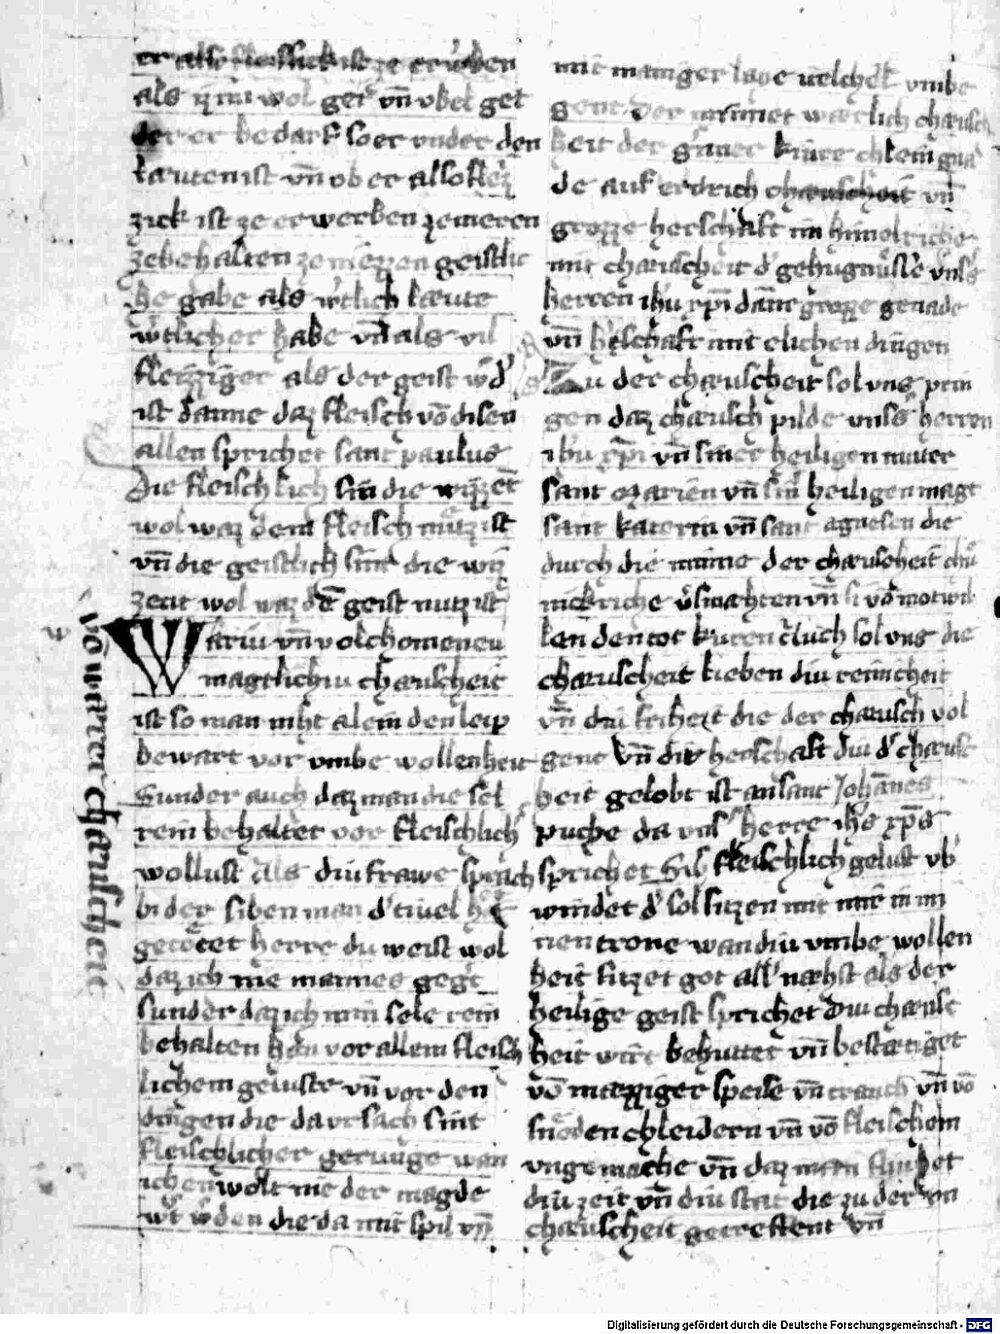 er also fleizzick ist ze erwerben
als im wol get vn̄ vbel get
der er bedarf so er vnder den
læuten ist vn̄ ob er also fleiz
zick ist ze erwerben ze meren
ze behalten ze niezzen geistlic
he gabe als w̓tlich læute
w̓tlicher habe vn̄ als vil
fleizziger als der geist w̓d̓
ist danne daz fleisch vō disen
allen sprichet sant paulus
Die fleischlich sint die wizzēt
wol waz dem fleisch nutz ist
vn̄ die geistlich sint die wiz
zent wol waz dē geist nutz ist
vō warer chæuscheit
Wariu vn̄ volchomeneu
magtlichiu chæuscheit
ist so man niht alein den leip
bewart vor vmbe wollenheit
Sunder auch daz man die sel
rein behaltet vor fleischlich̓
wollust Als diu frawe sprach
bi der siben man d̓ tiuel het
getötet herre du weist wol
daz ich nie mannes gegt
sunder daz ich min sele rein
behalten han vor allem fleisch
lichem geluste vn̄ vor den
dingen die da vrsach sint
fleischlicher gerunge wan
ichen wolt nie der magde
w̓t w̓den die da mit spil vn̄
mit maniger laye
gent Der minnet wærlich chæusch
heit der
de auf erdrich chæuscheit vn̄
grozze herschaft im himelriche
mit chæuscheit d̓ gehugnusse vns̓s
herren ihū xp̄i
vn̄ mit elichen dingen
Zu der chæuscheit sol vns prin
gen daz chæusch pilde vns̓s herren
ihū xp̄i vn̄ siner heiligen muter
sant Marien vn̄ sin̓ heiligen magt
sant katerin vn̄ sant agnesen die
durch die minne der chæuscheit chü
nickriche v̓smahten vn̄ si vō mōtwil
len den tot kuren Auch sol vns die
chæuscheit lieben diu reinicheit
vn̄ diu friheit die der chæusch vol
gent vn̄ diu herschaft diu d̓ chæusc
heit gelobt ist an sant Johānes
puche da vns̓ herre ihs̄ xp̄s
sprichet Swer fleischlich gelust vb̓
windet d̓ sol sitzen mit mir in mi
nem trone wan diu vmbe wollen
heit sitzet got all̓ næhst als der
heilige geist sprichet Diu chæusc
heit wirt behuttet vn̄ bestætiget
vō mæzziger speise vn̄ tranch vn̄ vō
snöden chleidern vn̄ vō fleischem
vngemache vn̄ daz man
diu zeit vn̄ diu stat die zu der vn
chæuscheit getreffent vn̄
Digitalisierung gefördert durch die Deutsche Forschungsgemeinschaft - DFG